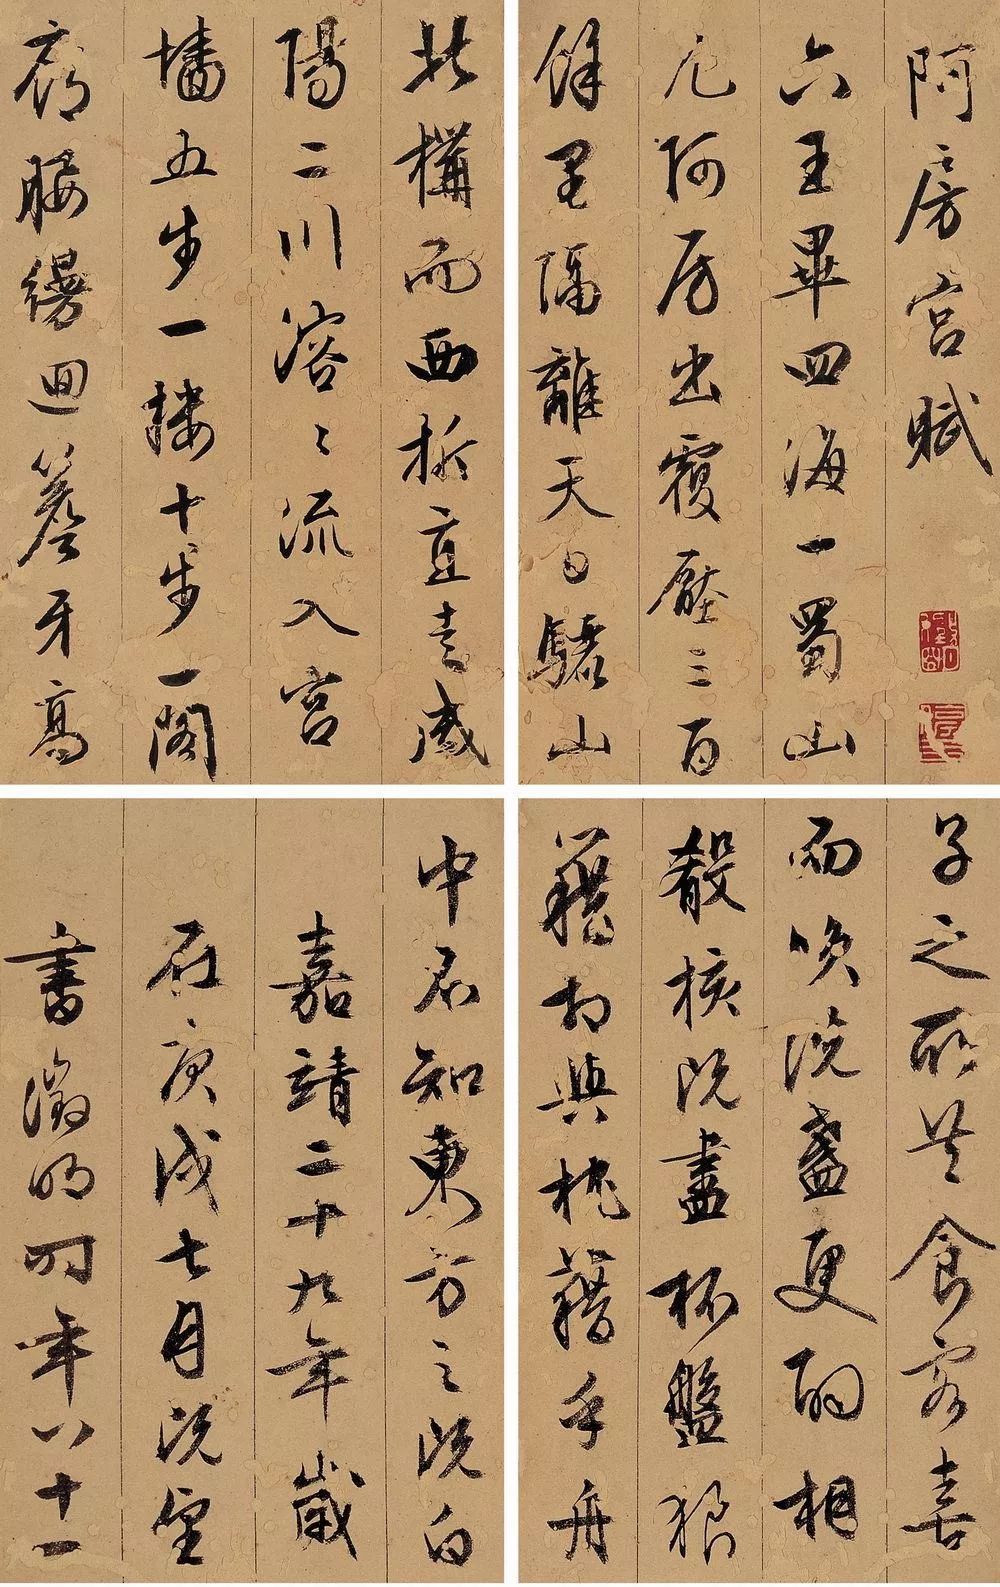 阿房宮賦
六王畢四海一蜀山
兀阿房出覆壓三百
餘里隔離天日驪山
北構而西折直走咸
陽二川溶〻流入宮
墻五步一樓十步一閣
廊腰縵迴簷牙高
子之所共食客喜
而笑洗盞更酌相
殽核既盡杯盤狼
籍相與枕藉乎舟
中不知東方之既白
嘉靖二十九年歲
在庚戌七月既望
書徵明時年八十一